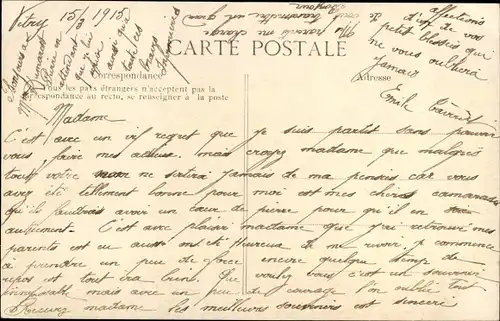 Vitry 15/3 1915
CARTE POSTALE
Correspondance
Adresse
Tous les pays étrangers n'acceptent pas la
correspondance au recto, se renseigner à la poste
Madame
C'est avec un vif regret que je suis partit sans pouvoir
vous faire mes adieu. mais croyez madame que malgrés
tout votre nom ne sortira jamais de ma pensée car vous
avez été tellement bonne pour moi est mes chers camarades
qu'ils faudrait avoir un cœur de pierre pour qu'il en
autrement. C'est avec plaisir madame que j'ai retrouver mes
parents est eu aussi ont été Heureux de me revoir. je commence
à prendre un peu de force encore quelque temp de
repos est tout ira bien. Que voulez vous c'est un souvenir
inoubliable mais avec un peu de courage l'on oublie tout
Recevez madame les meilleurs souvenirs est sincère
affections
d'un de vos
petit blessés qui
ne vous oubliera
jamais
Emile